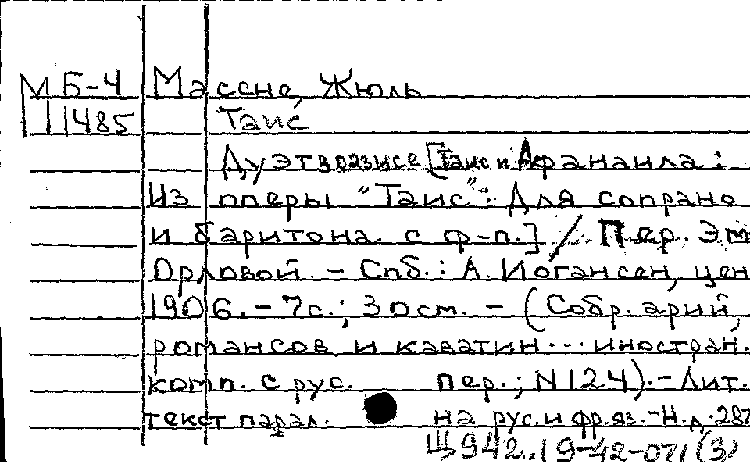 МБ-4 Массне, Жюль
11485 Таис
Дуэт в оазисе [Таис и Афанаила:
Из оперы "Таис": Для сопрано
и баритона с ф-п.] / Пер. Эм
Орловой. - Спб.: А. Иогансен, цен
1906. - 7с.; 30см. - (Собр. арий,
романсов и каватин... иностран.
комп. с рус. пер.; N 124). - Лит.
текст парал. на рус. и фр. яз. - Н.д. 287
Щ942.19-42-071(3)